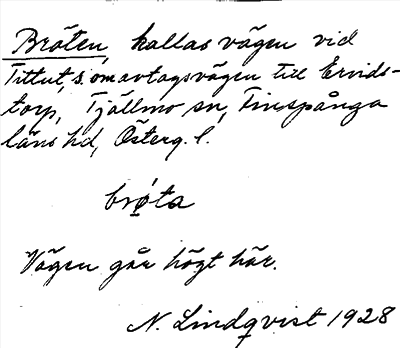 Bråten, kallas vägen vid
Tittut, s. om avtagsvägen till Ervids-
torp, Tjällmo sn, Finspånga
läns hd, Österg. l.
bro̯´ta
Vägen går högt här.
N. Lindqvist 1928